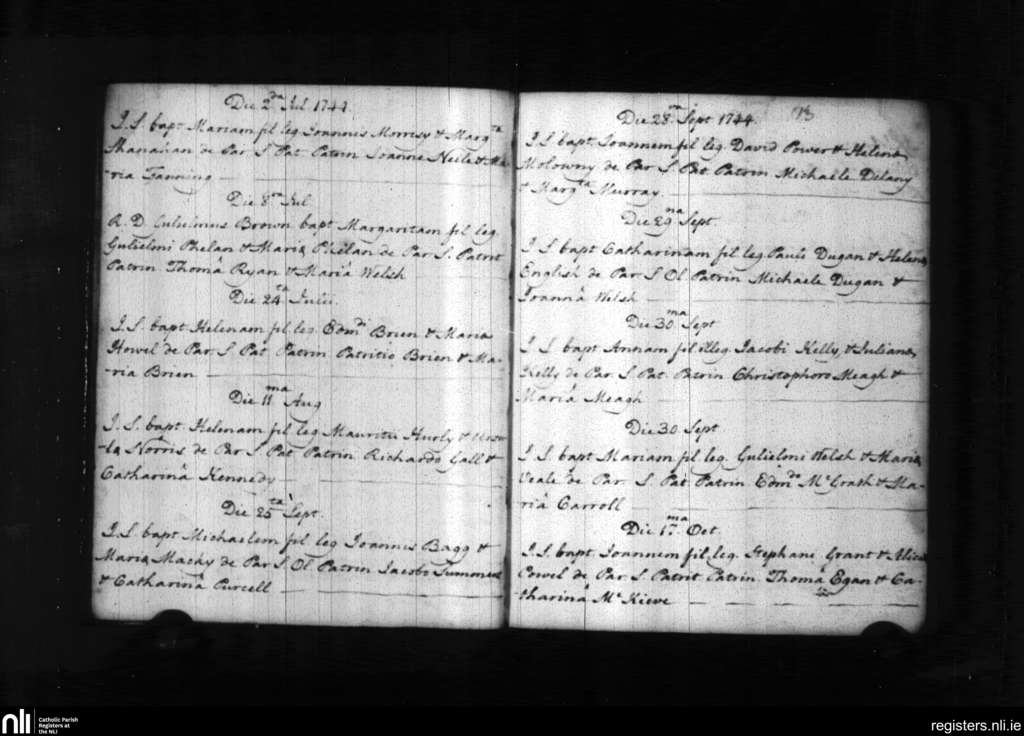 Die 2da Jul 1744
J.S. bapt Mariam fil leg Joannis Morrisy & Margta
Shanahan de Par S Pat Patrin Joanne Neile & Ma-
-ria Fanning
Die 8va Jul
R. D. Gulielmus Brown bapt Margaritam fil leg
Gulielmi Phelan & Maria Phelan de Par S. Patrit
Patrin Thomâ Ryan & Mariâ Welsh
Die 24ta Julii.
J.S. bapt Helenam fil leg Edmdi Brien & Maria
Howel de Par S Pat Patrin Patritio Brien & Ma-
-ria Brien
Die 11ma Aug
J. S. bapt Helenam fil leg Mauritii Hurly &
Norris de Par S Pat Patrin Richardo Gall &
Catharinâ Kennedy
Die 25ta Sept.
J.S. bapt Michaelem fil leg Joannis Bagg &
Maria Macky de Par S Ol Patrin Jacobo
& Catharinâ Purcell
73
Die 28va Sept 1744
J S bapt Joannem fil leg. David Power & Helena
Molowny de Par S Pat Patrin Michaele Delany
& Margta Murray
Die 29na Sept.
J S bapt Catharinam fil leg. Pauli Dugan & Helena
English de Par S Ol Patrin Michaele Dugan &
Joannâ Welsh
Die 30ma Sept
J S bapt Annam fil illeg. Jacobi Kelly & Juliana
Kelly de Par. S. Pat. Patrin Christophoro Meagh &
Mariâ Meagh
Die 30 Sept
J S bapt Mariam fil leg. Gulielmi Welsh & Maria
Veale de Par. S Pat Patrin Edmdo McGrath & Ma-
riâ Carroll
Die 17ma Oct.
J.S. bapt Joannem fil leg. Stephani Grant & Alicia
Powel de Par. S Patrit Patrin Thoma Egan & Ca-
-tharinâ McKieve
nli
Catholic Parish
Registers at
the NLI
registers.nli.ie